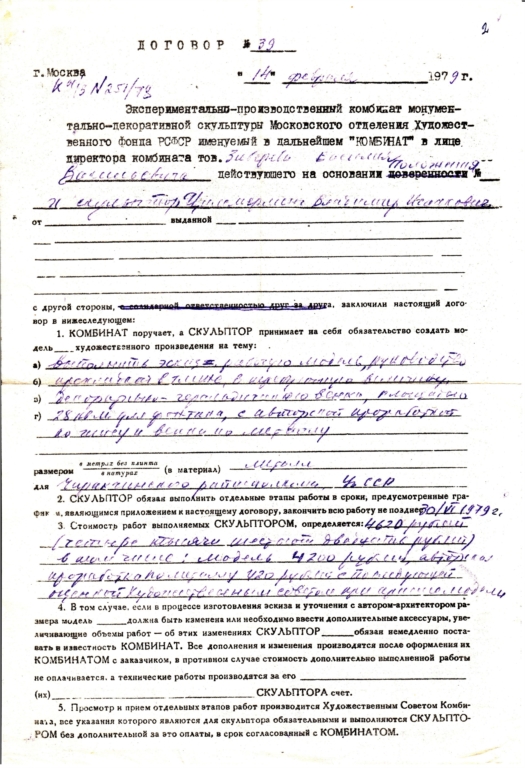 2
ДОГОВОР № 39
г. Москва "14" февраля 1979 г.
№ 251/73
Экспериментально-производственный комбинат монумен-
тально-декоративной скульптуры Московского отделения Художест-
венного фонда РСФСР именуемый в дальнейшем "КОМБИНАТ" в лице
директора комбината тов. Василия Положения
Васильевича действующего на основании доверенности №
и скульптор Владимир Исаакович
от выданной
с другой стороны, с солидарной ответственностью друг за друга, заключили настоящий дого-
вор в нижеследующем:
1. КОМБИНАТ поручает, а СКУЛЬПТОР принимает на себя обязательство создать мо-
дель художественного произведения на тему:
а) Выполнить эскиз рабочую модель, руководство
б) в глине в величину
в) Декоративно- площадью
г) 28 кв м для фонтана, с авторской проработкой
по гипсу и по металлу
размером в метрах без плинта в натурах (в материал) металл
для райисполкома УзССР
2. СКУЛЬПТОР обязан выполнить отдельные этапы работы в сроки, предусмотренные гра-
фик и, являющимся приложением к настоящему договору, закончить всю работу не позднее 30/VI 1979 г.
3. Стоимость работ выполняемых СКУЛЬПТОРОМ, определяется: 4620 рублей
(четыре тысячи шестьсот двадцать рублей)
в том числе: модель 4200 рублей, авторская
проработка по гипсу 420 рублей с последующей
оценкой Художественным советом при приеме модели
4. В том случае, если в процессе изготовления эскиза и уточнения с автором-архитектором ра-
змера модель должна быть изменена или необходимо ввести дополнительные аксессуары, уве-
личивающие объемы работ – об этих изменениях СКУЛЬПТОР обязан немедленно поста-
вать в известность КОМБИНАТ. Все дополнения и изменения производятся после оформления их
КОМБИНАТОМ с заказчиком, в противном случае стоимость дополнительно выполненной работы
не оплачивается, а технические работы производятся за его
(их) СКУЛЬПТОРА счет.
5. Просмотр и прием отдельных этапов работ производится Художественным Советом Комби-
ната, все указания которого являются для скульптора обязательными и выполняются СКУЛЬПТО-
РОМ без дополнительной за это оплаты, в срок согласованный с КОМБИНАТОМ.